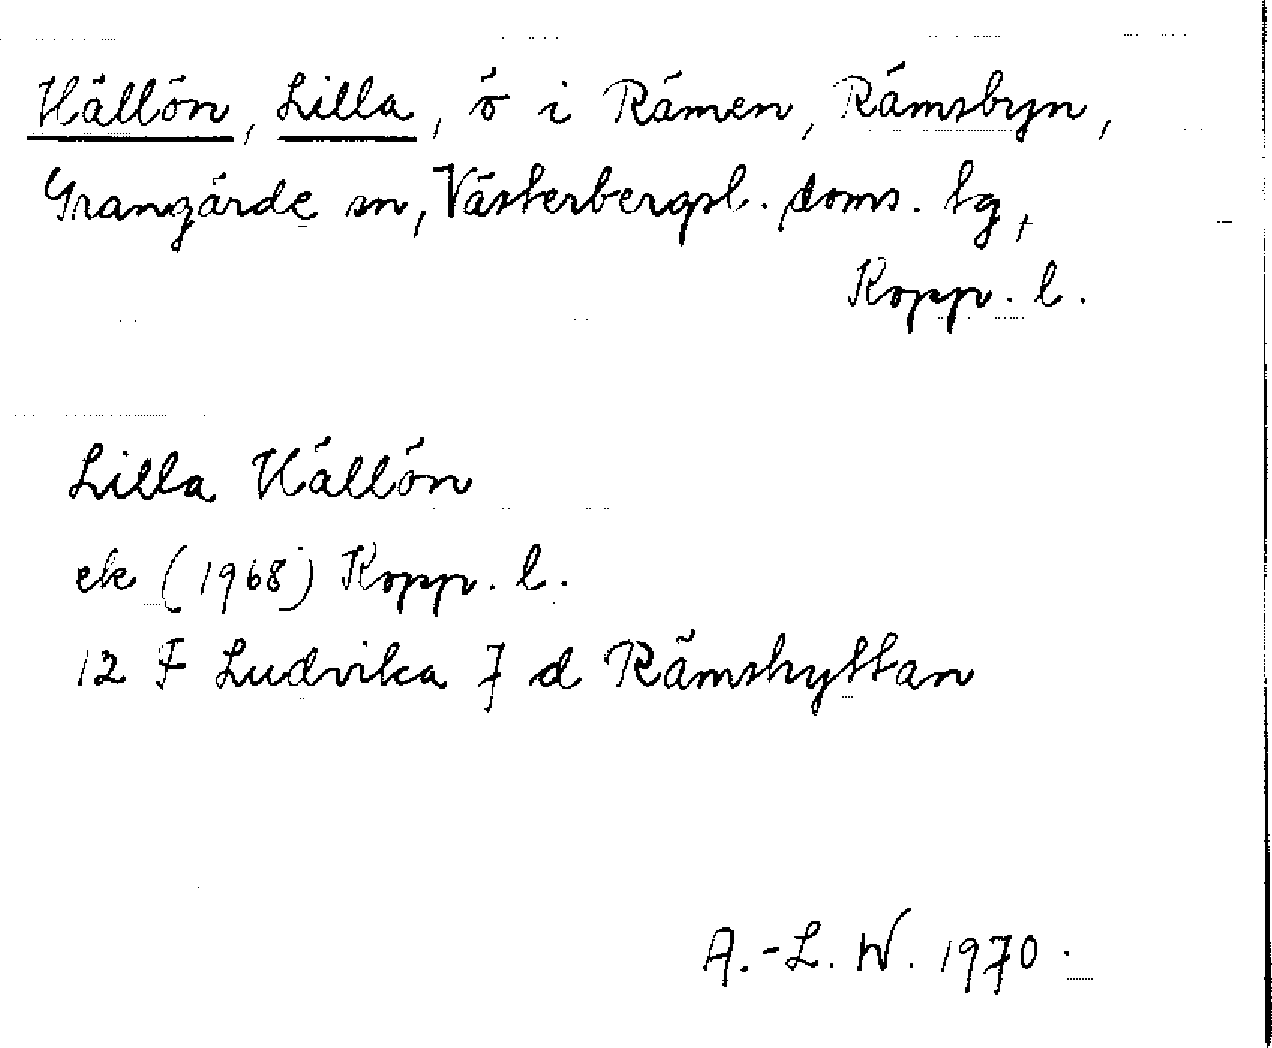 Hällön, Lilla, ö i Rämen, Rämsbyn,
Grangärde sn, Västerbergsl. doms. tg,
Kopp. l.
Lilla Hällön
ek (1968) Kopp. l.
12 F Ludvika 7 d Rämshyttan
A.-L. W. 1970.